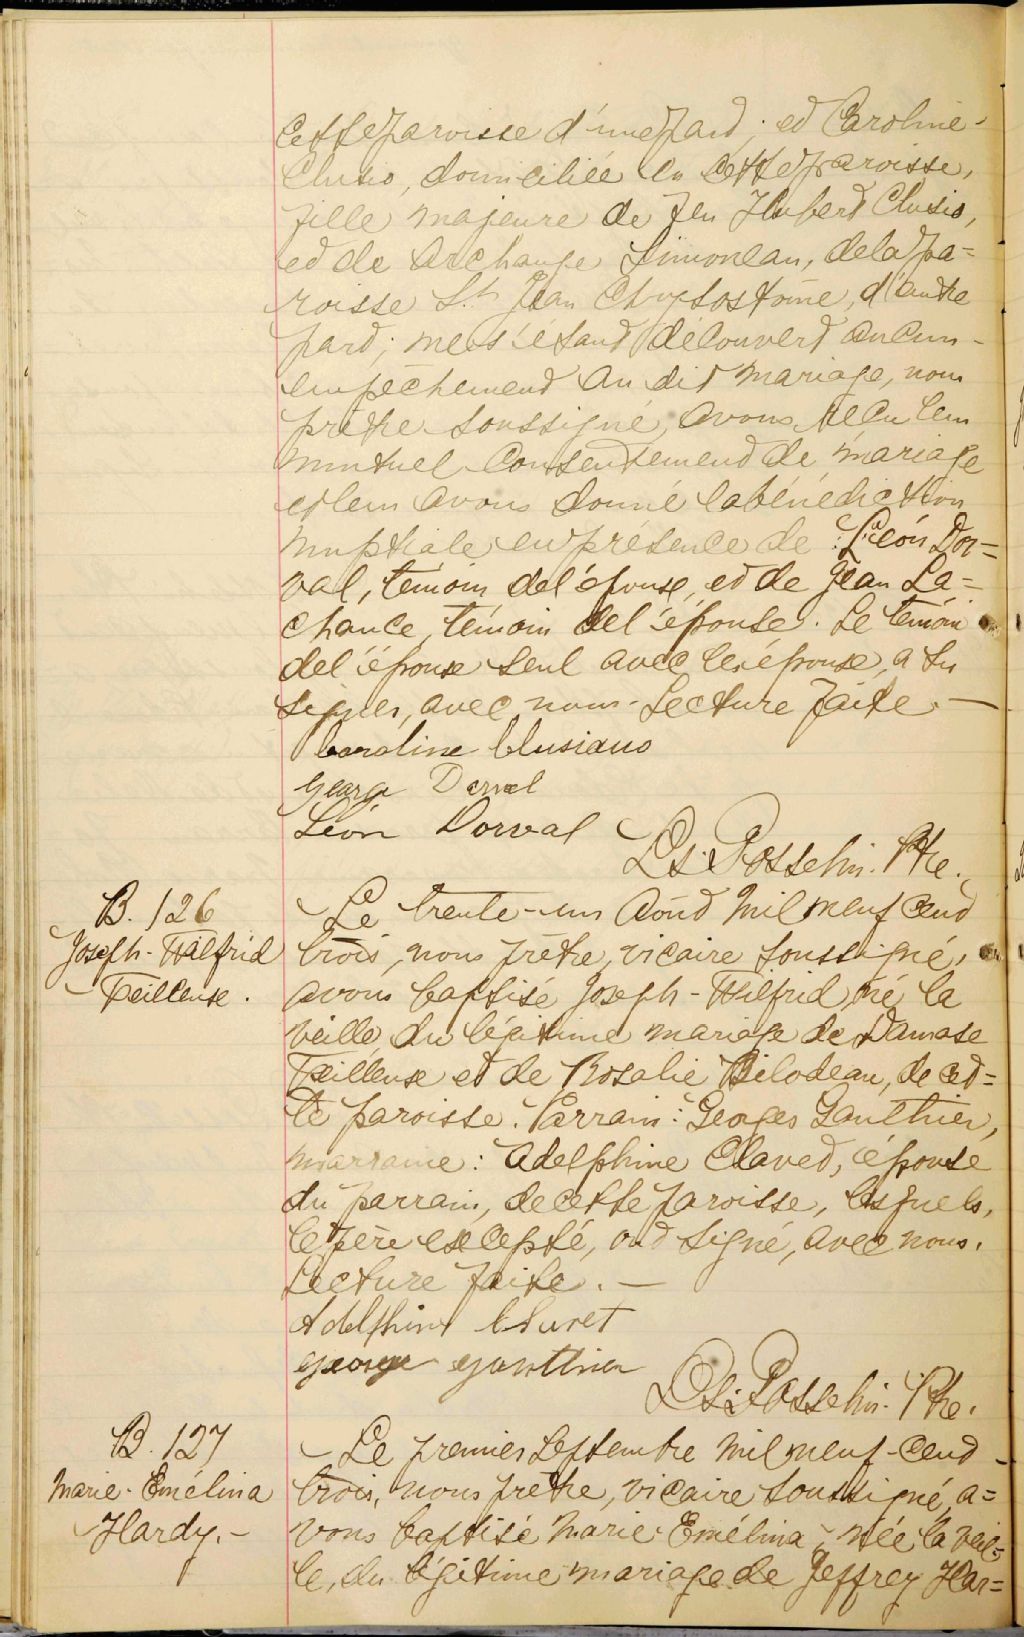 cette paroisse d'une part; et Caroline
Clusio, domiciliée en cette paroisse,
fille majeure de feu Hubert Clusio,
et de Archange Simoneau, de la pa=
roisse St Jean Chrysostôme, d'autre
part; ne s'étant découvert aucun
empêchement au dit mariage, nous
prêtre soussigné, avons reçu leur
mutuel consentement de mariage
et leur avons donné la bénédiction
nuptiale en présence de : Léon Dor=
val, témoin de l'épouse, et de Jean La=
chance, témoin de l'épouse. Le témoin
de l'épouse seul avec les épouse, a su
signer, avec nous. Lecture faite. —
Caroline Clusiau
George Dorval
Léon Dorval
Ls. Posselin. Ptre.
B. 126
Joseph-Wilfrid
Feilleuse.
Le trente-un Août mil neuf cent
trois, nous prêtre, vicaire soussigné,
avons baptisé Joseph-Wilfrid, né la
veille, du légitime mariage de Damase
Feilleuse et de Rosalie Bilodeau, de cet=
te paroisse. Parrain: Georges Gauthier,
marraine: Adelphine Clavet, épouse
du parrain, de cette paroisse, lesquels,
le père excepté, ont signé, avec nous.
Lecture faite. —
Adelphine Clavet
George Gauthier
Ls. Posselin. Ptre.
B. 127
Marie-Emélina
Hardy.-
Le premier Septembre mil neuf-cent
trois, nous prêtre, vicaire soussigné, a=
vons baptisé Marie-Emélina, née la veil=
le, du légitime mariage de Jeffrey Har=